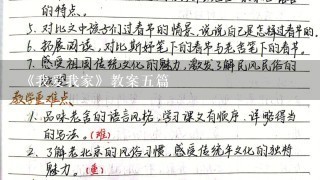 的特点。
5. 对比文中孩子们过春节的情景，说说自己是怎样过春节的。
6. 拓展阅读，对比斯好笔下的春节与老舍笔下的春节。
7. 感受祖国传统文化的魅力，激发了解民风民俗的
《我爱我家》教案五篇
教学重难点
1. 品味老舍的语言风格，学习课文有顺序、详略得当
的写法。（难）
2. 了解老北京的风俗习惯，感受传统年文化的独特
魅力。（重）